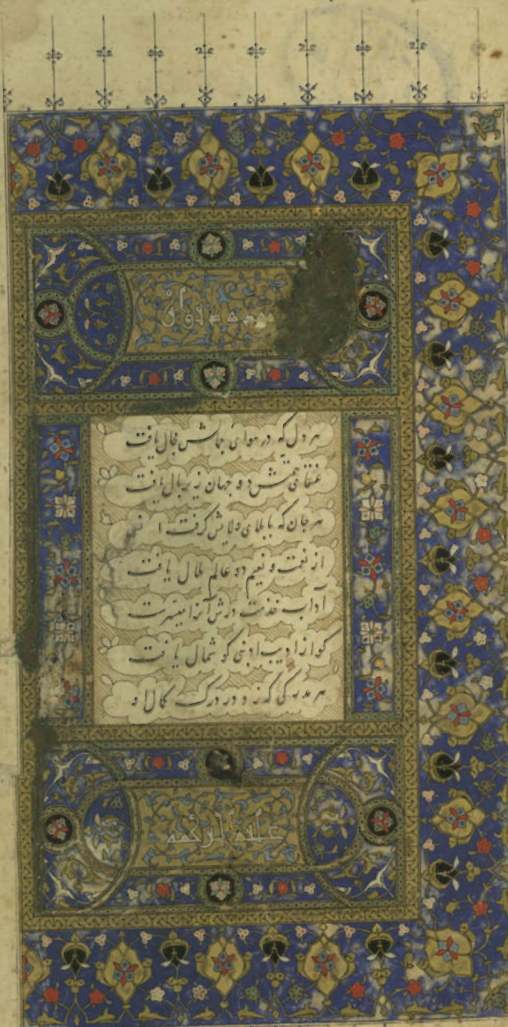 هر دل که در هوای جمالش مجال یافت
عنقای همتش دو جهان زیر بال یافت
هر جان که با بلای ولایش گرفت
از نعمت و نعیم دو عالم ملال یافت
آداب خدمت درش آنرا میسرست
کو از ادیب ادبنی گوشمال یافت
هر مدرکی که زد در درک کمال و
علیه الرحمه